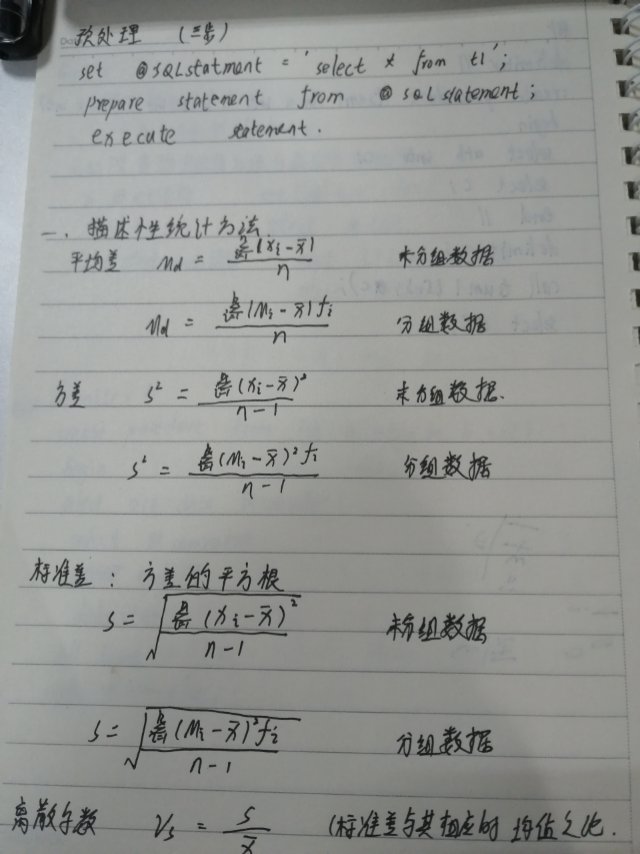 预处理 (三步)
set @SQLstatment = 'select * from t1';
prepare statement from @SQLstatement;
execute statement.
一、描述性统计方法.
平均差 Md = Σ(xi - x̄) / n 未分组数据
Md = Σ(Mi - x̄)fi / n 分组数据
方差 s² = Σ(xi - x̄)² / n-1 未分组数据.
s² = Σ(Mi - x̄)² fi / n-1 分组数据
标准差: 方差的平方根
s = √(Σ(xi - x̄)² / n-1) 未分组数据
s = √(Σ(Mi - x̄)² fi / n-1) 分组数据
离散系数 Vs = s / x̄ (标准差与其相应的均值之比.